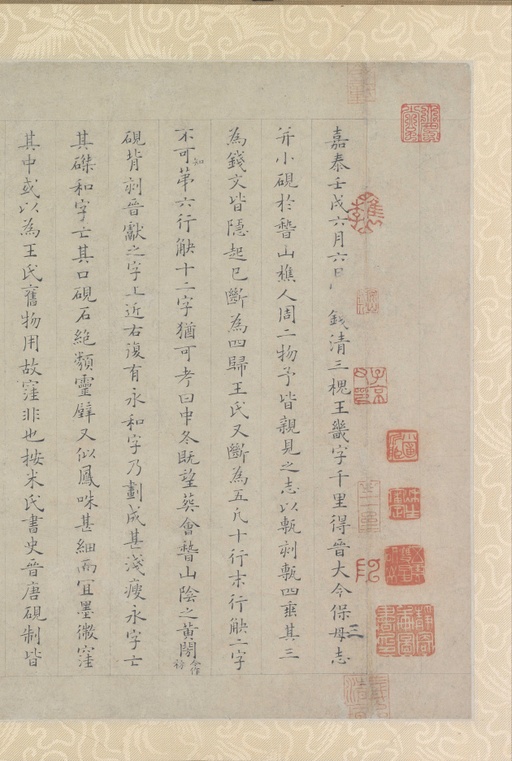 嘉泰壬戌六月六日　錢清三槐王畿字千里得晉大令保母志
并小硯於稽山樵人周二物予皆親見之志以甎刻甎四垂其三
為錢文皆隱起已斷為四歸王氏又斷為五凡十行末行觖二字
不可知第六行觖十二字猶可考曰中冬既望葬會稽山陰之黃閍今作祊
硯背刻晉獻之字上近右復有永和字乃劃成甚淺瘦永字亡
其磔和字亡其口硯石絕類靈壁又似鳳咮甚細而宜墨微窪
其中或以為王氏舊物用故窪非也按米氏書史晉唐硯制皆